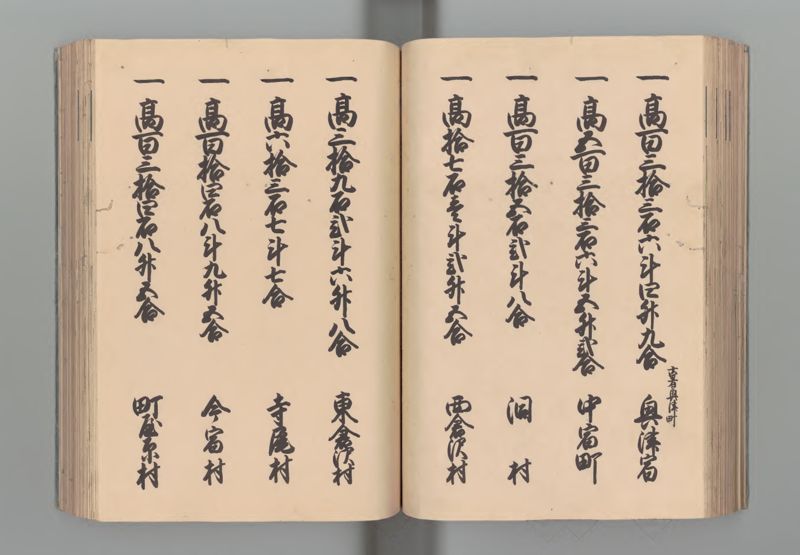 一 高百三拾三石六斗四升九合 古者奥津町 奥津宿
一 高五百三拾三石六斗五升弐合 中宿町
一 高百三拾五石弐斗八合 洞村
一 高拾七石壱斗弐升五合 西倉沢村
一 高三拾九石弐斗六升八合 東倉沢村
一 高六拾三石七斗七合 寺尾村
一 高百拾四石八斗九升五合 今宿村
一 高百三拾四石八升五合 町屋原村